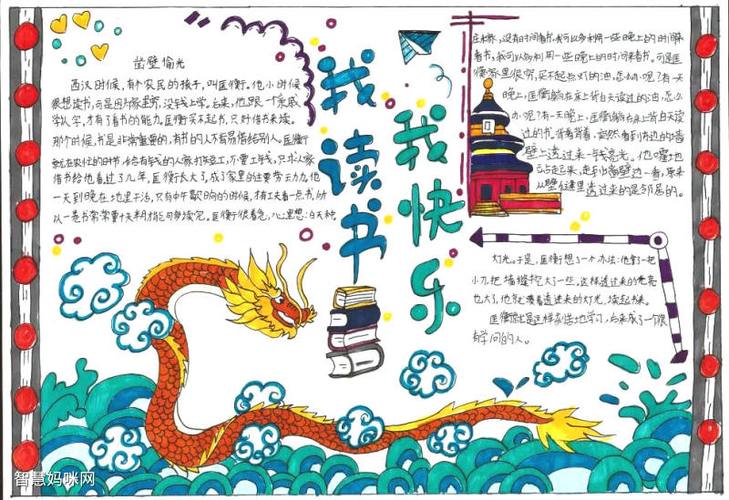 凿壁偷光
西汉时候,有个农民的孩子,叫匡衡。他小时候
很想读书,可是因为家里穷,没钱上学。后来,他跟一个亲戚
学认字,才有了看书的能力。匡衡买不起书,只好借书来读。
那个时候,书是非常贵重的,有书的人不肯轻易借给别人。匡衡
就在农忙的时节,给有钱的人家打短工,不要工钱,只求人家
借书给他看。过了几年,匡衡长大了,成了家里的主要劳动力。他
一天到晚在地里干活,只有中午歇晌的时候,才有工夫看一点书,所
以一卷书常常要十天半月才能够读完。匡衡很着急,心里想:白天种
我读书
我快乐
庄稼,没有时间看书,我可以多利用一些晚上的时间来
看书,我可以多利用一些晚上的时间来看书。可是匡
衡家里很穷,买不起点灯的油,怎么办呢?有一天
晚上,匡衡躺在床上背白天读过的书
壁上透过来一线亮光。他嚯地
站起来,走到墙壁边一看,原来
从壁缝里透过来的是邻居的
灯光。于是,匡衡想了一个办法:他拿了一把
小刀,把墙缝挖大了一些。这样,透过来的光亮
也大了,他就凑着透进来的灯光,读起书来。
匡衡就是这样刻苦地学习,后来成了一个很
有学问的人。
智慧妈咪网